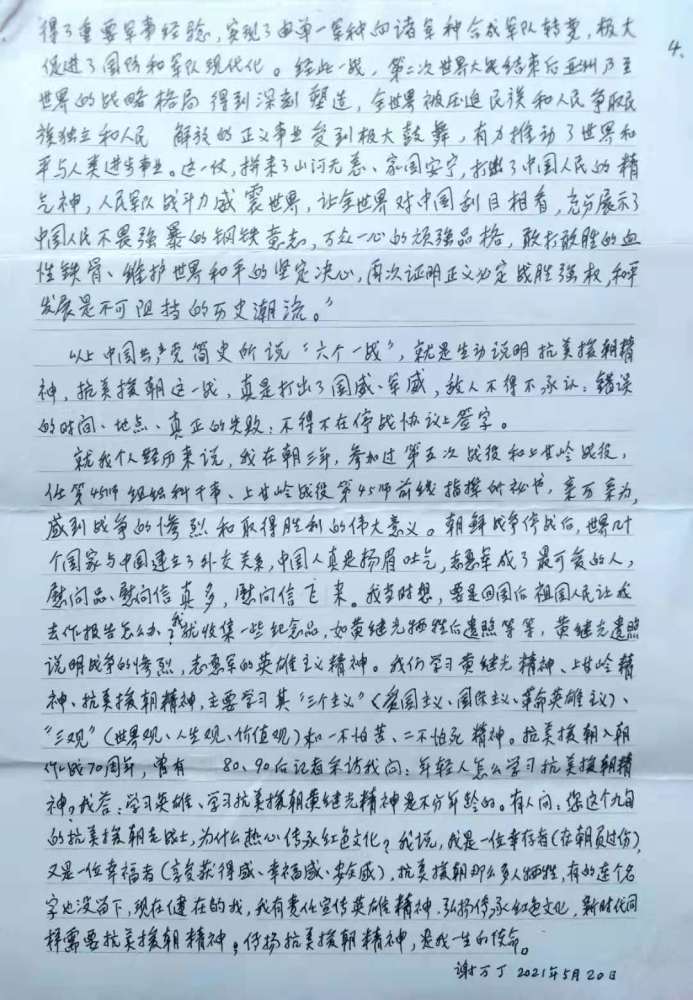 4、
得了重要军事经验，实现了由单一军种向诸军种合成军队转变，极大
促进了国防和军队现代化。经此一战，第二次世界大战结束后亚洲乃至
世界的战略格局得到深刻塑造，全世界被压迫民族和人民争取民
族独立和人民 解放的正义事业受到极大鼓舞，有力推动了世界和
平与人类进步事业。这一仗，拼来了山河无恙、家国安宁，打出了中国人民的精
气神，人民军队战斗力威震世界，让全世界对中国刮目相看，充分展示了
中国人民不畏强暴的钢铁意志，万众一心的顽强品格，敢打敢胜的血
性铁骨、维护世界和平的坚定决心，再次证明正义必定战胜强权，和平
发展是不可阻挡的历史潮流。”
以上中国共产党简史所说“六个一战”，就是生动说明抗美援朝精
神，抗美援朝这一战，真是打出了国威、军威，敌人不得不承认：错误
的时间、地点、真正的失败；不得不在停战协议上签字。
就我个人经历来说，我在朝三年，参加过第五次战役和上甘岭战役，
任第45师组织科干事、上甘岭战役第45师前线指挥所秘书，亲历亲为，
感到战争的惨烈和取得胜利的伟大意义。朝鲜战争停战后，世界对
个国家与中国建立了外交关系，中国人真是扬眉吐气，志愿军成了最可爱的人，
慰问品、慰问信真多，慰问信飞来。我当时想，要是回国后祖国人民让我
去作报告怎么办？我就收集一些纪念品，如黄继光牺牲后遗照等等，黄继光遗照
说明战争的惨烈，志愿军的英雄主义精神。我们学习黄继光精神、上甘岭精
神、抗美援朝精神，主要学习其“三个主义”（爱国主义、国际主义、革命英雄主义）、
“三观”（世界观、人生观、价值观）和一不怕苦、二不怕死精神。抗美援朝入朝
作战70周年，曾有 80、90后记者采访我问：年轻人怎么学习抗美援朝精
神。我答：学习英雄、学习抗美援朝黄继光精神是不分年龄的。有人问：您这个九旬
的抗美援朝老战士，为什么热心传承红色文化？我说，我是一位幸存者（在朝负过伤），
又是一位幸福者（享受获得感、幸福感、安全感），抗美援朝那么多人牺牲，有的连个名
字也没留下，现在健在的我，我有责任宣传英雄精神，弘扬传承红色文化，新时代同
样需要抗美援朝精神；传扬抗美援朝精神，是我一生的使命。
谢万丁 2021年5月20日